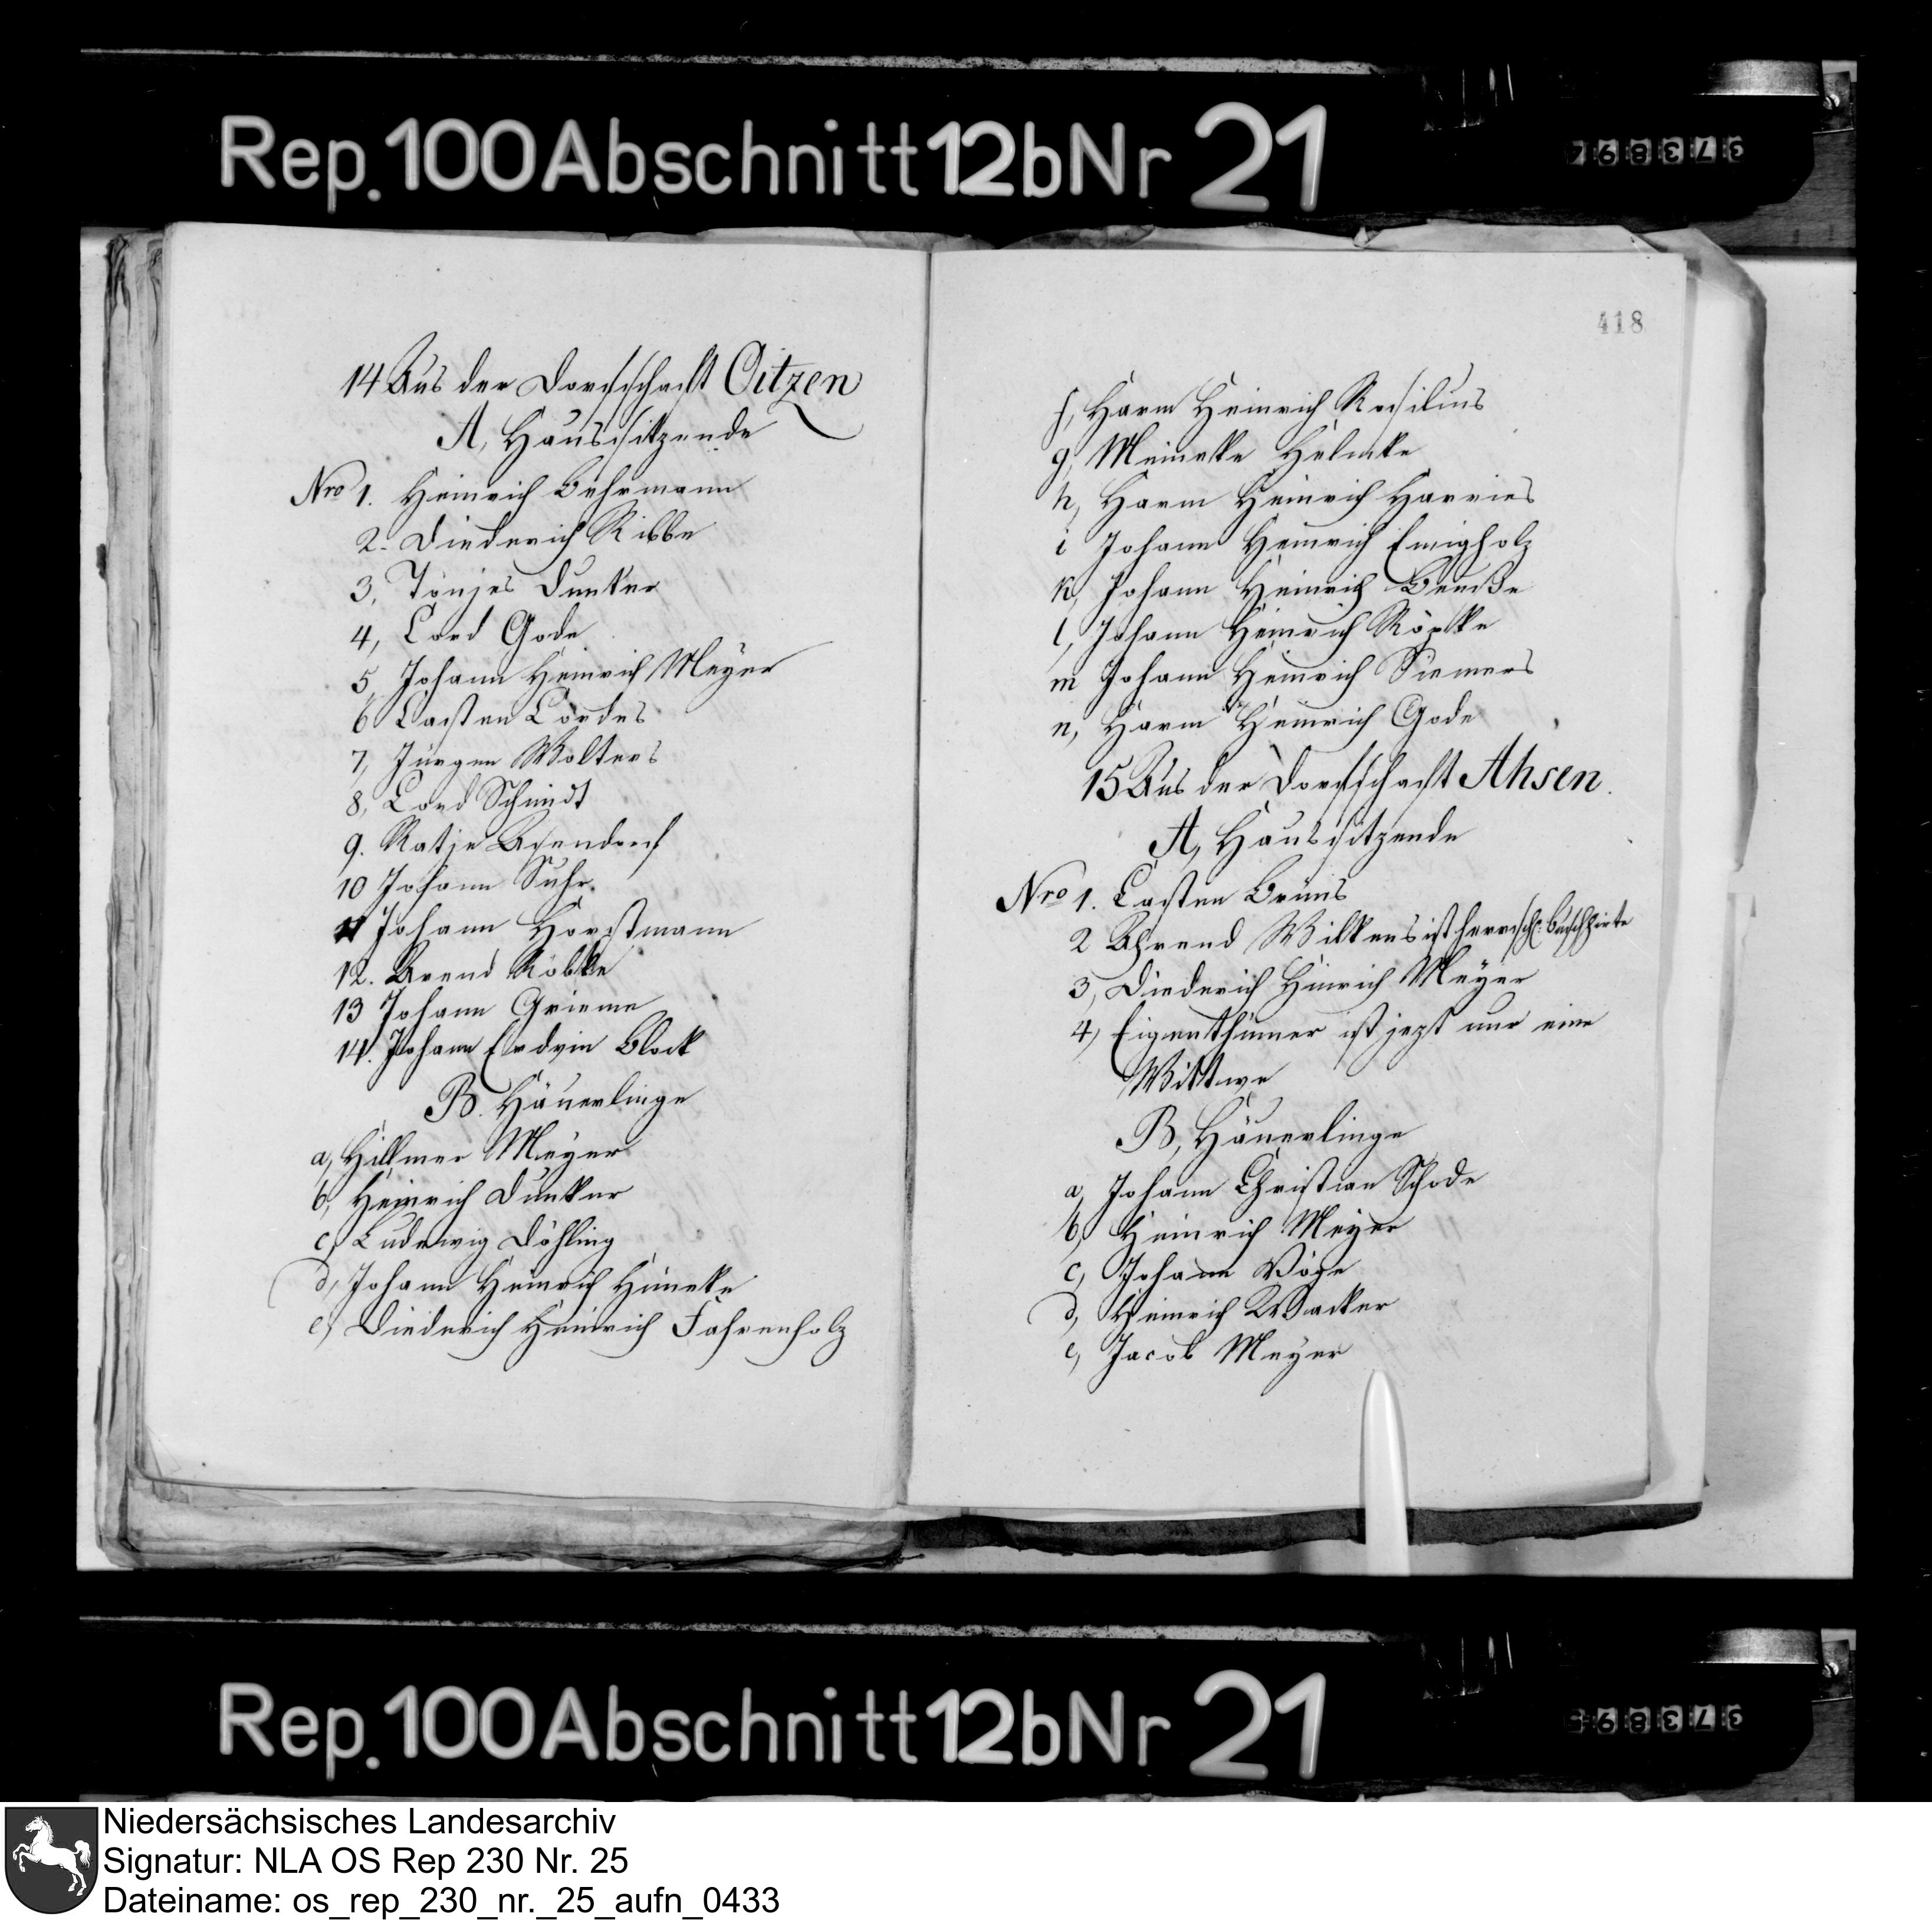 Rep. 100 Abschnitt 12b Nr 21
373897
14 Aus der Dorfschaft Oitzen
A, Haussitzende
Nro 1. Heinrich Behrmann
2. Diederich Ribbe
3, Tönjes Dunker
4, Cord Gode
5, Johann Heinrich Meyer
6 Casten Cordes
7, Jürgen Wolters
8, Cord Schmidt
9. Ratje Asendorf
10 Johann Suhr.
11 Johann Horstmann
12. Arend Röbke
13 Johann Grieme
14. Johann Erdvin Block
B. Häuerlinge
a, Hillmer Meyer
b, Heinrich Dunker
c, Ludewig Döhling
d, Johann Heinrich Hüneke
e, Diederich Heinrich Fahrenholz
418
f, Harm Heinrich Rosilius
g, Meineke Helmke
h, Harm Heinrich Harries
i Johann Heinrich Emigholz
k, Johann Heinrich
l, Johann Heinrich Röpke
m Johann Heinrich Siemers
n, Harm Heinrich Gode
15 Aus der Dorfschaft Ahsen.
A, Haussitzende
Nro 1. Casten Bruns
2 Ahrend Wilkens ist herrsch:
3, Diederich Hinrich Meyer
4, Eigenthümer ist jezt nur eine
Wittwe
B, Häuerlinge
a, Johann Christian Schode
b, Heinrich Meyer
c, Johann Vöge
d, Heinrich Wacker
e, Jacob Meyer
Rep. 100 Abschnitt 12b Nr 21
Niedersächsisches Landesarchiv
Signatur: NLA OS Rep 230 Nr. 25
Dateiname: os_rep_230_nr._25_aufn_0433